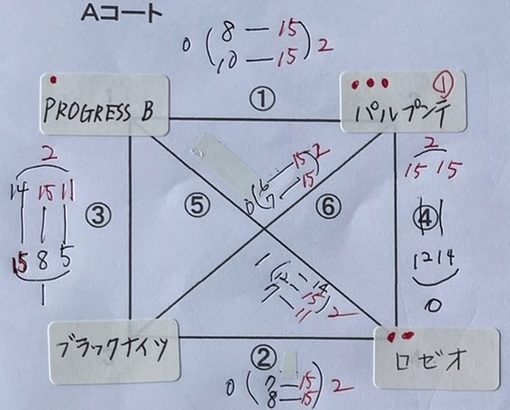 Aコート
0 ( 8 — 15
10 — 15 ) 2
PROGRESS B
①
パルプンテ
①
2
14 15 11
15 8 5
1
③
⑤
⑥
0 ( 6 — 15
7 — 15 ) 2
2
15 15
④
12 14
0
ブラックナイツ
②
ロゼオ
8 — 15 ) 2